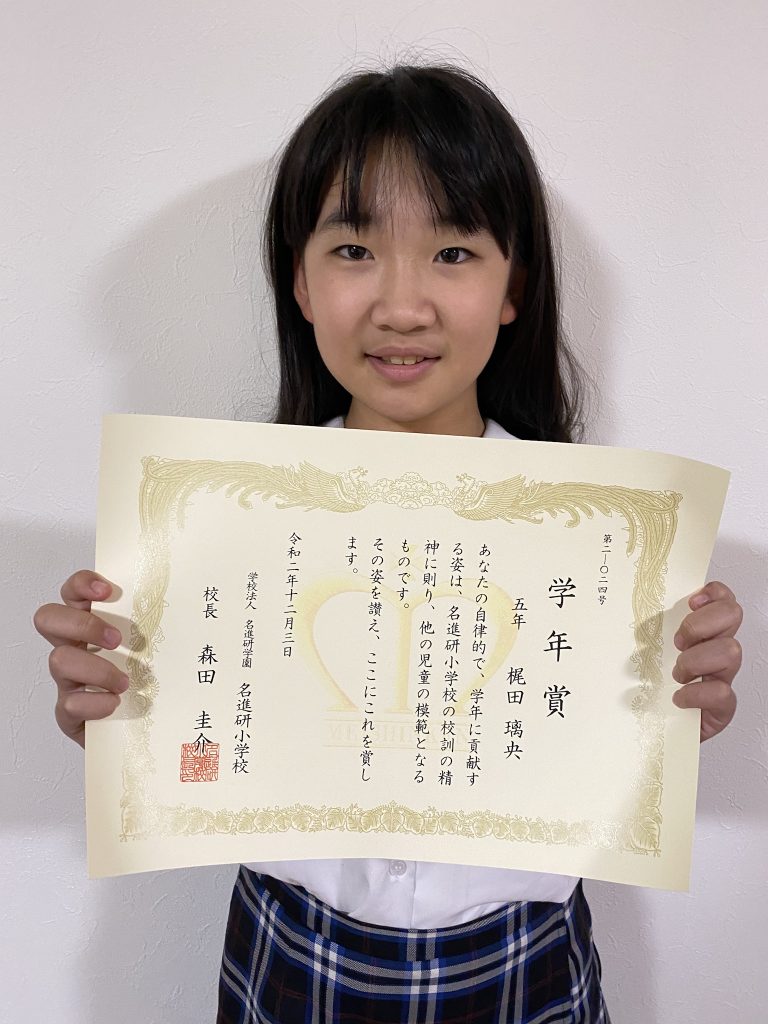 第二ー〇二四号
学年賞
五年 梶田 璃央
あなたの自律的で、学年に貢献す
る姿は、名進研小学校の校訓の精
神に則り、他の児童の模範となる
ものです。
その姿を讃え、ここにこれを賞し
ます。
令和二年十二月三日
学校法人 名進研学園 名進研小学校
校長 森田 圭介